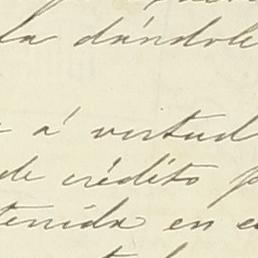 la dándole
á virtud
de crédito
tenida en